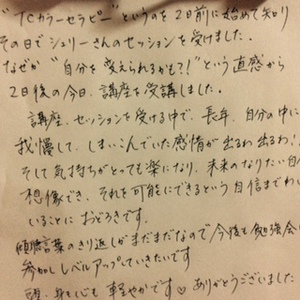 "TCカラーセラピー"というのを2日前に始めて知り
その日でシュリーさんのセッションを受けました。
なぜか"自分を変えられるかも?!"という直感から
2日後の今日、講座を受講しました。
講座、セッションを受ける中で、長年、自分の中に
我慢して、しまいこんでいた感情が出るわ出るわ!
そして気持ちがとっても楽になり、未来のなりたい自
想像でき、それを可能にできるという自信までわい
いることにおどろきです。
傾聴言葉のきり返しがまだまだなので今後も勉強会に
参加しレベルアップしていきたいです
頭・身も心も軽やかです♡ありがとうございました